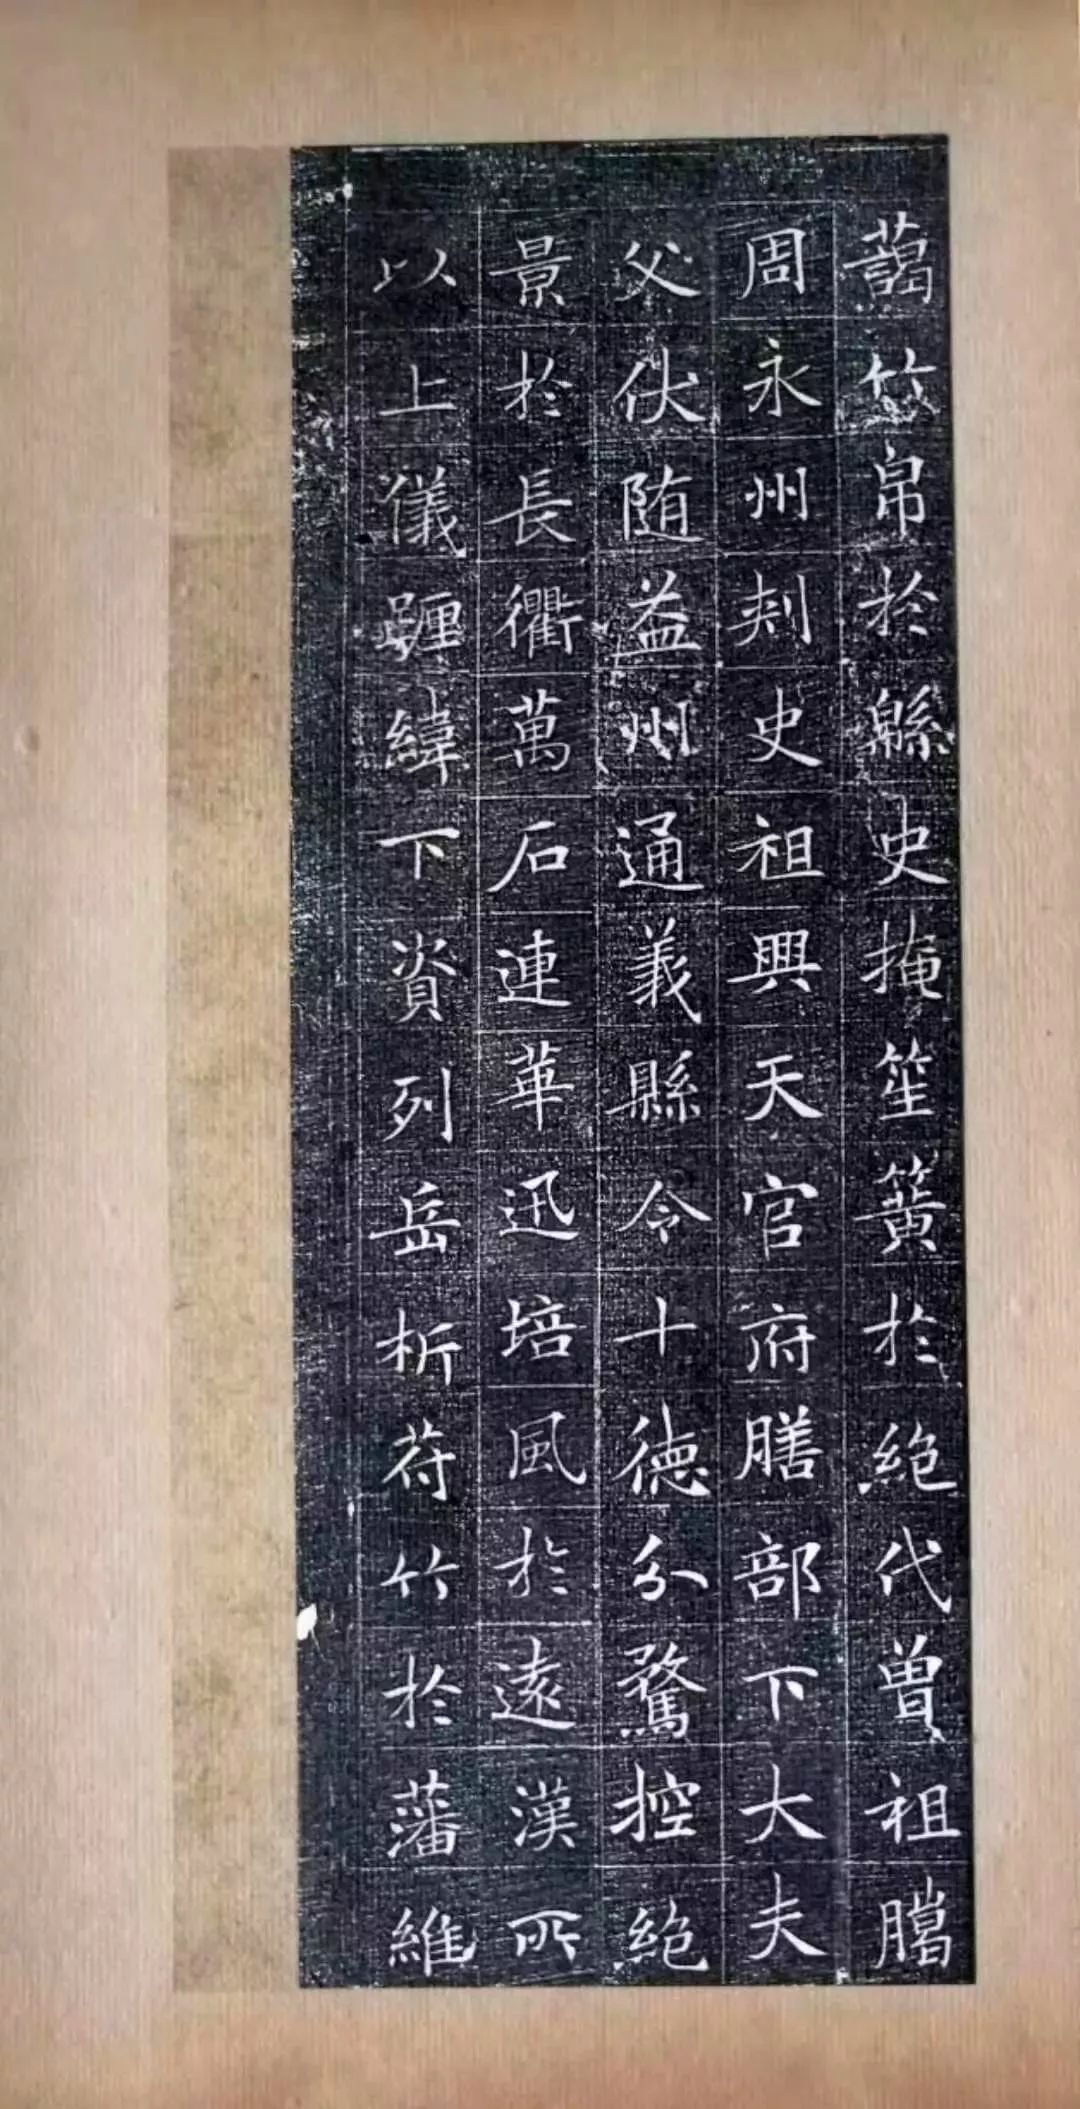 藹竹帛於緜史掩笙簧於絶代曾祖騰
周永州刾史祖興天官府膳部下大夫
父伏随益州通義縣令十徳分騖控絶
景於長衢萬石連華迅培風於遠漢所
以上儀躔緯下資列岳析苻竹於藩維